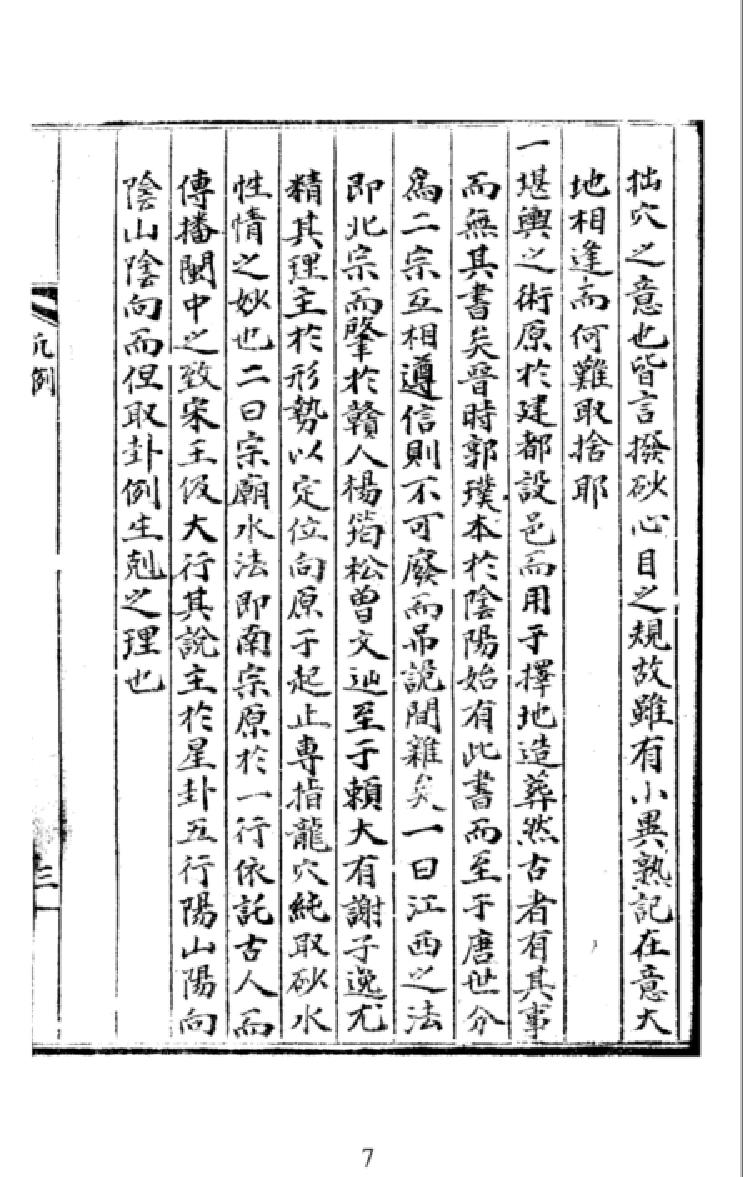 拙穴之意也皆言撥砂心目之規故雖有小異熟記在意大
地相逢而何難取捨耶
一堪輿之術原於建都設邑而用于擇地造葬然古者有其事
而無其書矣晉時郭璞本於陰陽始有此書而至于唐世分
為二宗互相遵信則不可廢而吊詭間雜矣一曰江西之法
即北宗而肇於贛人楊筠松曾文辿至于賴大有謝子逸尤
精其理主於形勢以定位向原于起止專指龍穴純取砂水
性情之妙也二曰宗廟水法即南宗原於一行依託古人而
傳播閩中之致宋王伋大行其說主於星卦五行陽山陽向
陰山陰向而但取卦例生剋之理也
凡例
三
7